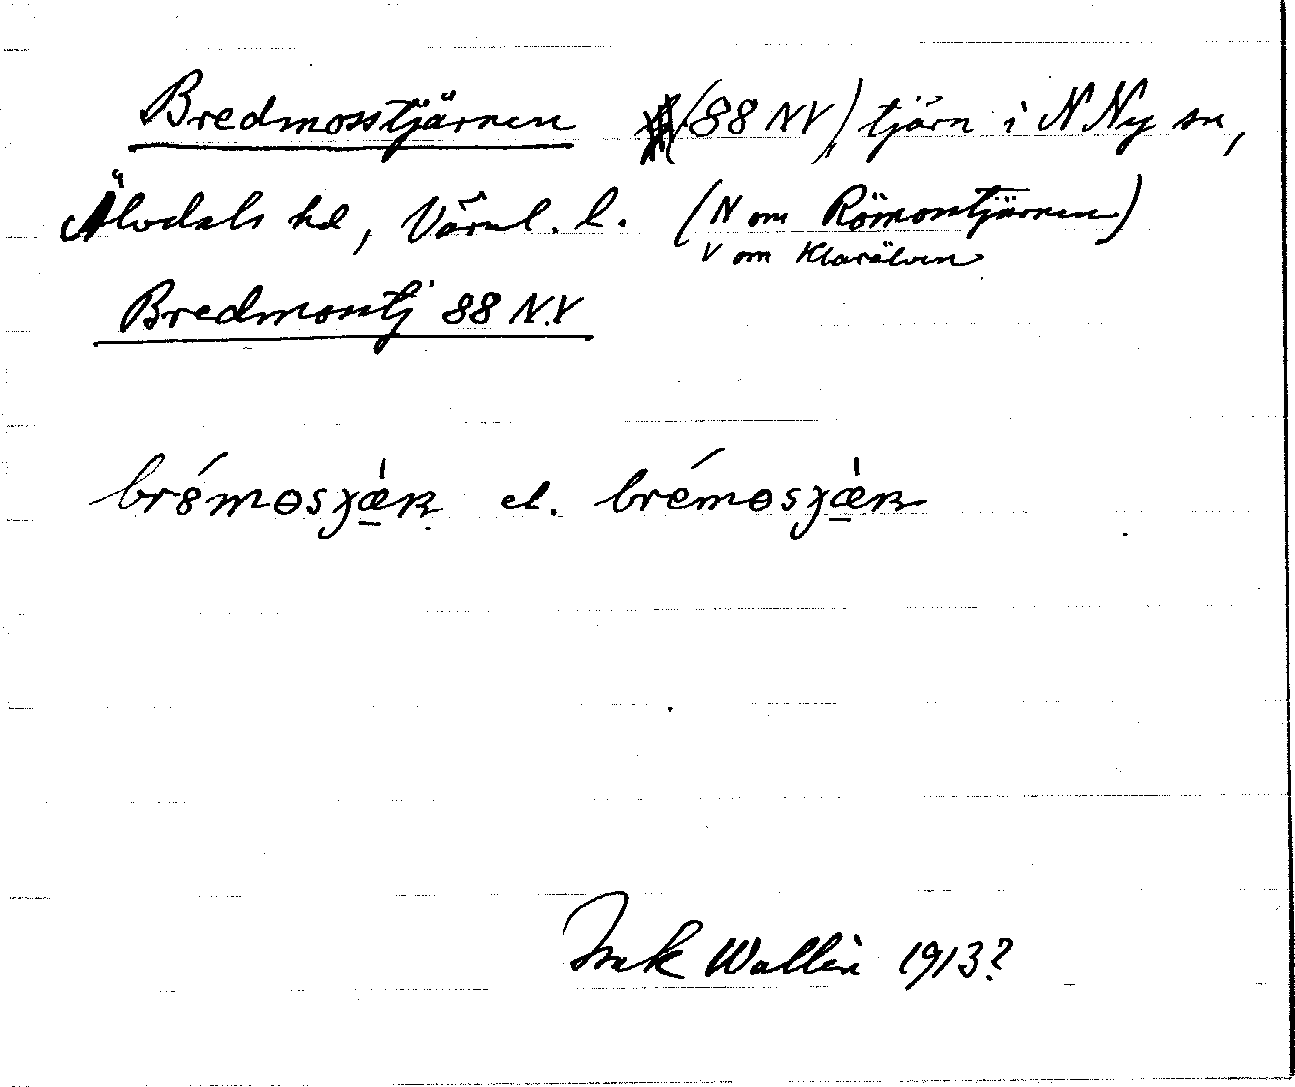 Bredmosstjärnen (88 NV) tjärn i N Ny sn,
Älvdals hd, Värml. l. (N om Römosstjärnen)
V om Klarälven
Bredmosstj 88 N.V
el.
Isak Wallin 1913?